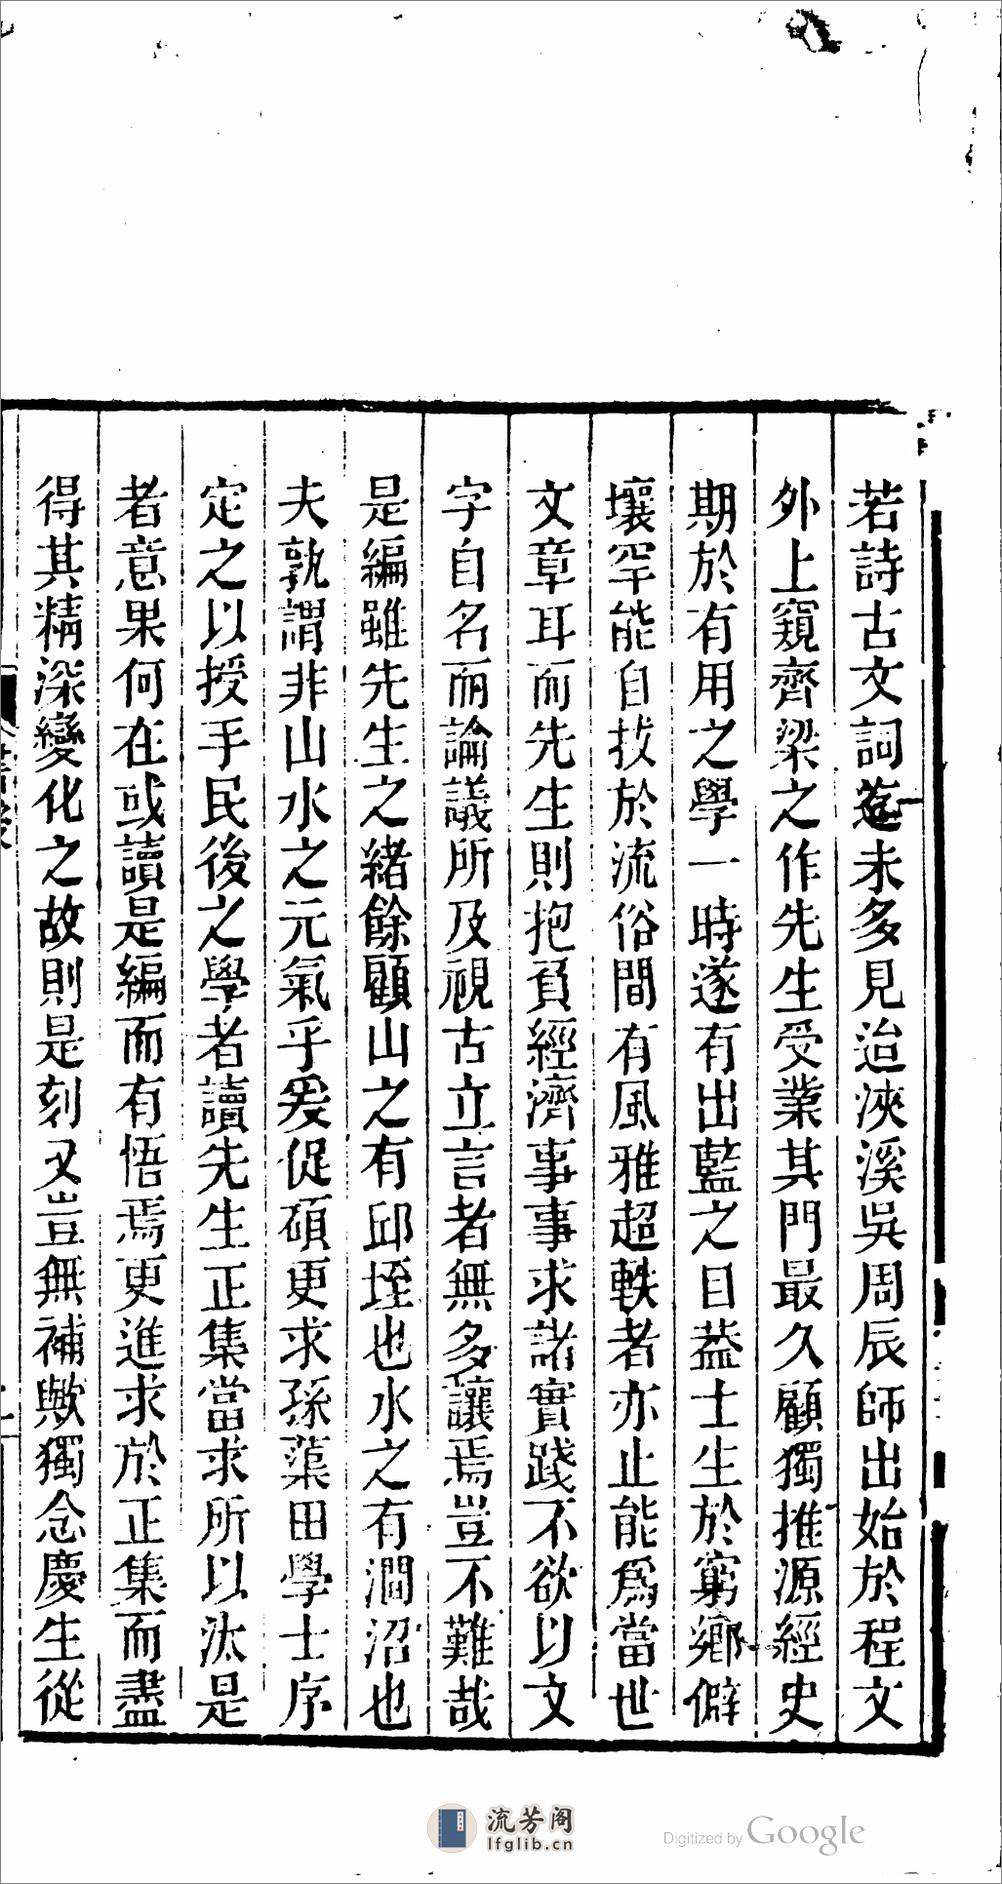 若詩古文詞邈未多見迨浹溪吳周辰師出始於程文
外上窺齊梁之作先生受業其門最久顧獨推源經史
期於有用之學一時遂有出藍之目葢士生於窮鄉僻
壤罕能自拔於流俗間有風雅超軼者亦止能爲當世
文章耳而先生則抱負經濟事事求諸實踐不欲以文
字自名而論議所及視古立言者無多讓焉豈不難哉
是編雖先生之緒餘顧山之有邱垤也水之有澗沼也
夫孰謂非山水之元氣乎爰促碩更求孫蕖田學士序
定之以授手民後之學者讀先生正集當求所以汰是
者意果何在或讀是編而有悟焉更進求於正集而盡
得其精深變化之故則是刻又豈無補歟獨念慶生從
流芳阁
lfglib.cn
Digitized by Google